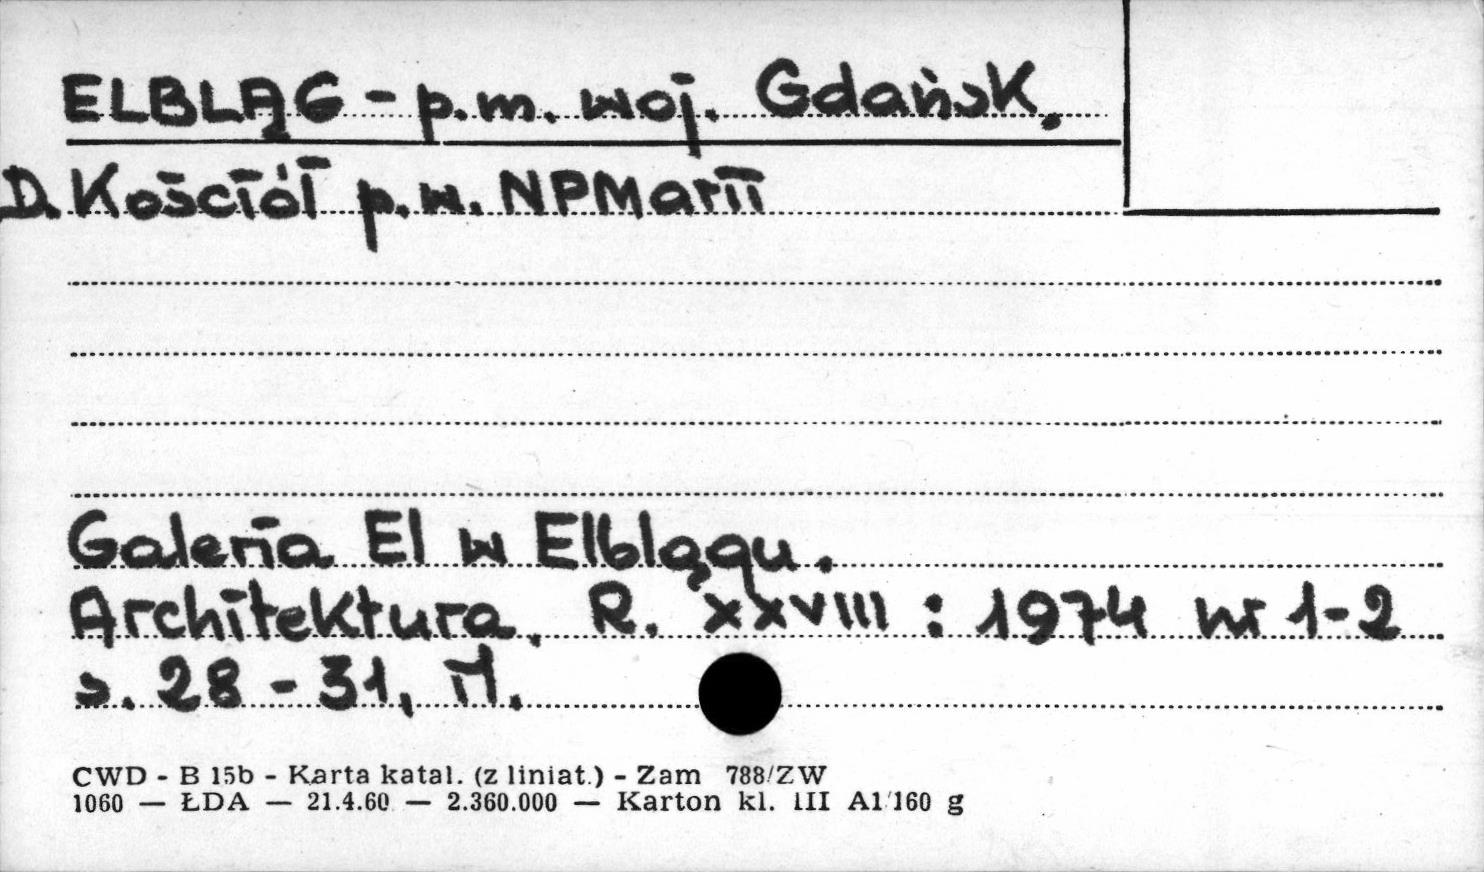 ELBLĄG - p.m. woj. Gdańsk.
D. Kościół p.w. NPMarii
Galeria El w Elblągu.
Architektura. R. XXVIII : 1974 nr 1-2
s. 28 - 31, il.
CWD - B 15b - Karta katal. (z liniat.) - Zam 788/ZW
1060 — ŁDA — 21.4.60 — 2.360.000 — Karton kl. III A1/160 g